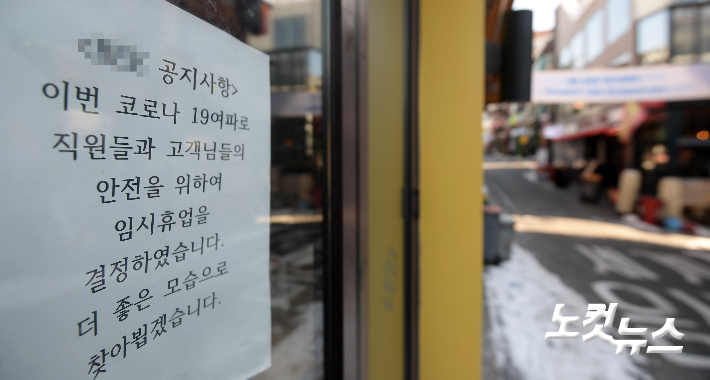 공지사항>
이번 코로나 19여파로
직원들과 고객님들의
안전을 위하여
임시휴업을
결정하였습니다.
더 좋은 모습으로
찾아뵙겠습니다.
노컷뉴스